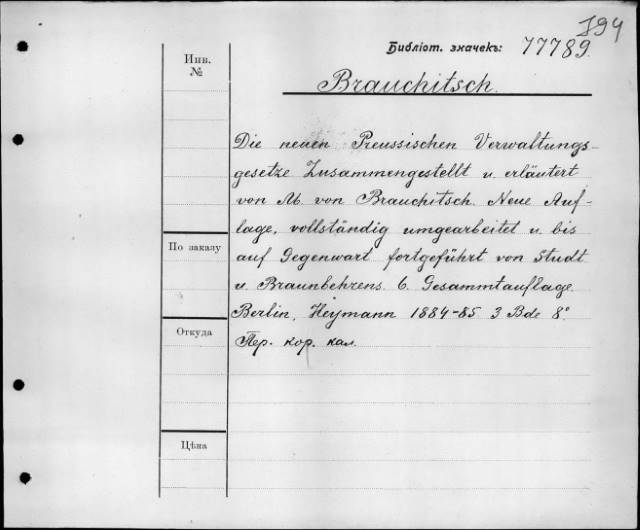 194
Библіот. значекъ: 77789.
Инв.
№
Brauchitsch.
Die neuen Preussischen Verwaltungs-
gesetze Zusammengestellt u. erläutert
von M. von Brauchitsch. Neue Auf-
lage, vollständig umgearbeitet u. bis
По заказу
auf Gegenwart fortgeführt von Studt
u. Braunbehrens. 6. Gesammtauflage.
Berlin, Heymann 1884-85. 3 Bde 8°
Откуда
Пер. кор. кал.
Цѣна